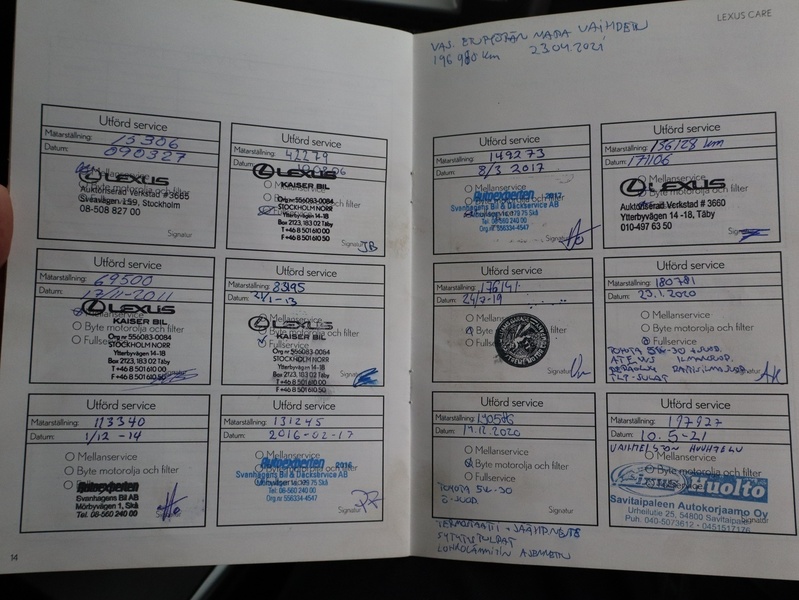 LEXUS CARE
VAS. ETUPYÖRÄN NAPA VAIHDETTU
196 980 km 23.04.2021
Utförd service
Mätarställning: 15306
Datum: 090327
LEXUS
Auktoriserad Verkstad #3665
Sveavägen 159, Stockholm
08-508 827 00
Signatur
Utförd service
Mätarställning: 42279
Datum:
LEXUS
KAISER BIL
Org nr 556083-0084
STOCKHOLM NORR
Ytterbyvägen 14-18
Box 2123, 183 02 Täby
T +46 8 501 610 00
F +46 8 501 610 50
Signatur
JB
Utförd service
Mätarställning: 149273
Datum: 8/3 2017
Mellanservice
Autoexperten 2017
Svanhagens Bil & Däckservice AB
Tel: 08-560 240 00
Org.nr 556334-4547
Signatur
Utförd service
Mätarställning: 156128 km
Datum: 171106
Mellanservice
Byte motorolja och filter
LEXUS
Auktoriserad Verkstad # 3660
Ytterbyvägen 14 -18, Täby
010-497 63 50
Signatur
Utförd service
Mätarställning: 69500
Datum: 17/11-2011
LEXUS
KAISER BIL
Byte motorolja och filter
Org nr 556083-0084
Fullservice
STOCKHOLM NORR
Ytterbyvägen 14-18
Box 2123, 183 02 Täby
T +46 8 501 610 00
F +46 8 501 610 50
Utförd service
Mätarställning: 83195
Datum: 2/1-13
Mellanservice
LEXUS
KAISER BIL
Org nr 556083-0084
STOCKHOLM NORR
Ytterbyvägen 14-18
Box 2123, 183 02 Täby
T +46 8 501 610 00
F +46 8 501 610 50
Signatur
Utförd service
Mätarställning: 176141
Datum: 24/2-19
Mellanservice
Byte motorolja och filter
Fullservice
Signatur
Utförd service
Mätarställning: 180781
Datum: 23.1.2020
Mellanservice
Byte motorolja och filter
Fullservice
TOYOTA 5W-30 +SUOD.
RAITISILMASUOD.
Signatur
Utförd service
Mätarställning: 113340
Datum: 1/12 -14
Mellanservice
Byte motorolja och filter
Autoexperten
Svanhagens Bil AB
Mörbyvägen 1, Skå
Tel. 08-560 240 00
Signatur
Utförd service
Mätarställning: 131245
Datum: 2016-02-17
Mellanservice
Autoexperten 2016
Svanhagens Bil & Däckservice AB
Tel: 08-560 240 00
Org.nr 556334-4547
Signatur
Utförd service
Mätarställning:
Datum: 17.12.2020
Mellanservice
Byte motorolja och filter
Fullservice
TOYOTA 5W-30
Ö-SUOD.
Signatur
TERMOSTAATTI + JÄÄHDNESTE
SYTYTYSTULPAT
LOHKOLÄMMITIN ASENNETTU
Utförd service
Mätarställning: 197927
Datum: 10.5-21
VAIHTEISTON HUUHTELU
Mellanservice
Byte motorolja och filter
Huolto
Savitaipaleen Autokorjaamo Oy
Urheilutie 25, 54800 Savitaipale
Puh. 040-5073612 - 0451517176
Signatur
14